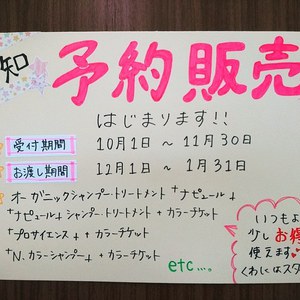 知
予約販売
はじまります!!
受付期間 10月1日 ～ 11月30日
お渡し期間 12月1日 ～ 1月31日
オーガニックシャンプートリートメント 『ナピュール』
『ナピュール』シャンプートリートメント + カラーチケット
『プロサイエンス』 + カラーチケット
『N. カラーシャンプー』 + カラーチケット
etc...。
いつもよ
少しお得
使えます
くわしくはスタ